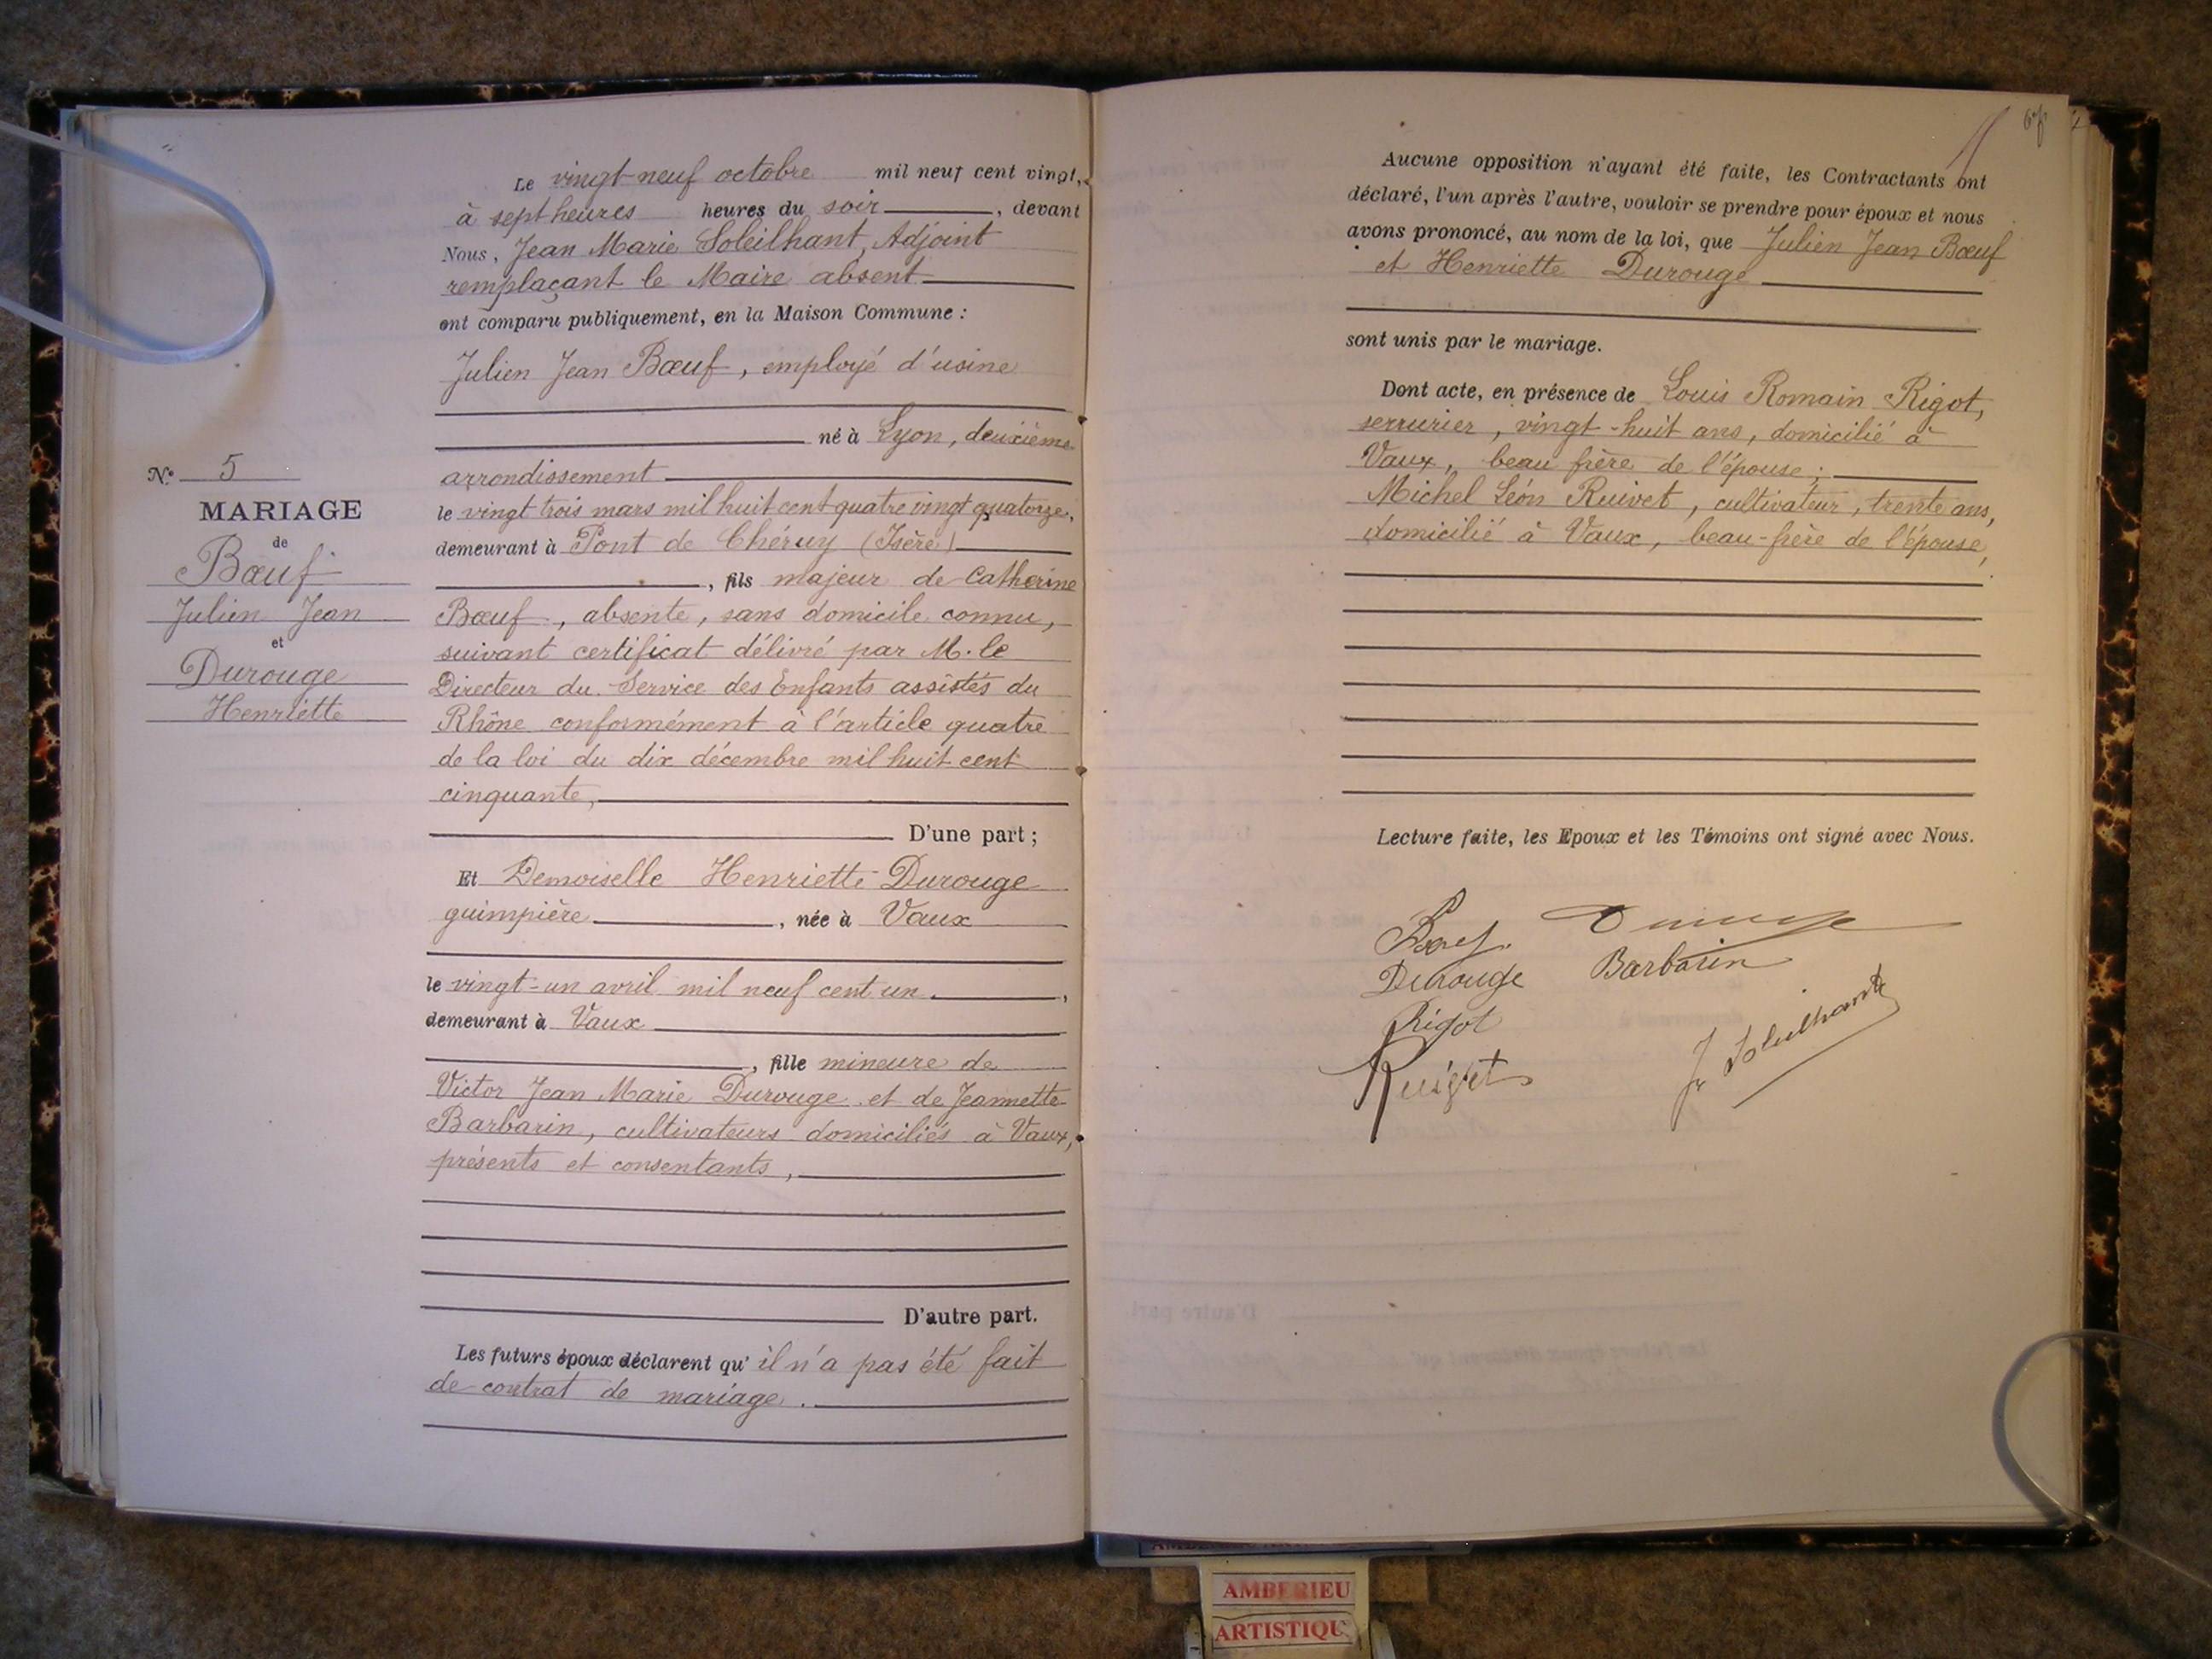 Le vingt-neuf octobre mil neuf cent vingt,
à sept heures heures du soir, devant
Nous, Jean Marie Soleilhant, Adjoint
remplaçant le Maire absent
ont comparu publiquement, en la Maison Commune :
Julien Jean Bœuf, employé d'usine
né à Lyon, deuxième
arrondissement
le vingt trois mars mil huit cent quatre vingt quatorze,
demeurant à Pont de Chéruy (Isère)
, fils majeur de Catherine
Bœuf, absente, sans domicile connu,
suivant certificat délivré par M. le
Directeur du Service des Enfants assistés du
Rhône conformément à l'article quatre
de la loi du dix décembre mil huit cent
cinquante,
D'une part ;
Et Demoiselle Henriette Durouge
guimpière, née à Vaux
le vingt-un avril mil neuf cent un,
demeurant à Vaux
, fille mineure de
Victor Jean Marie Durouge et de Jeannette
Barbarin, cultivateurs domiciliés à Vaux,
présents et consentants,
D'autre part.
Les futurs époux déclarent qu'il n'a pas été fait
de contrat de mariage.
N° 5
MARIAGE
de
Bœuf
Julien Jean
et
Durouge
Henriette
Aucune opposition n'ayant été faite, les Contractants ont
déclaré, l'un après l'autre, vouloir se prendre pour époux et nous
avons prononcé, au nom de la loi, que Julien Jean Bœuf
et Henriette Durouge
sont unis par le mariage.
Dont acte, en présence de Louis Romain Rigot,
serrurier, vingt-huit ans, domicilié à
Vaux, beau frère de l'épouse ;
Michel Léon Ruivet, cultivateur, trente ans,
domicilié à Vaux, beau-frère de l'épouse,
Lecture faite, les Epoux et les Témoins ont signé avec Nous.
Bœuf Durouge
Durouge Barbarin
Rigot
J. Soleilhant
Ruivet
AMBERIEU
ARTISTIQU